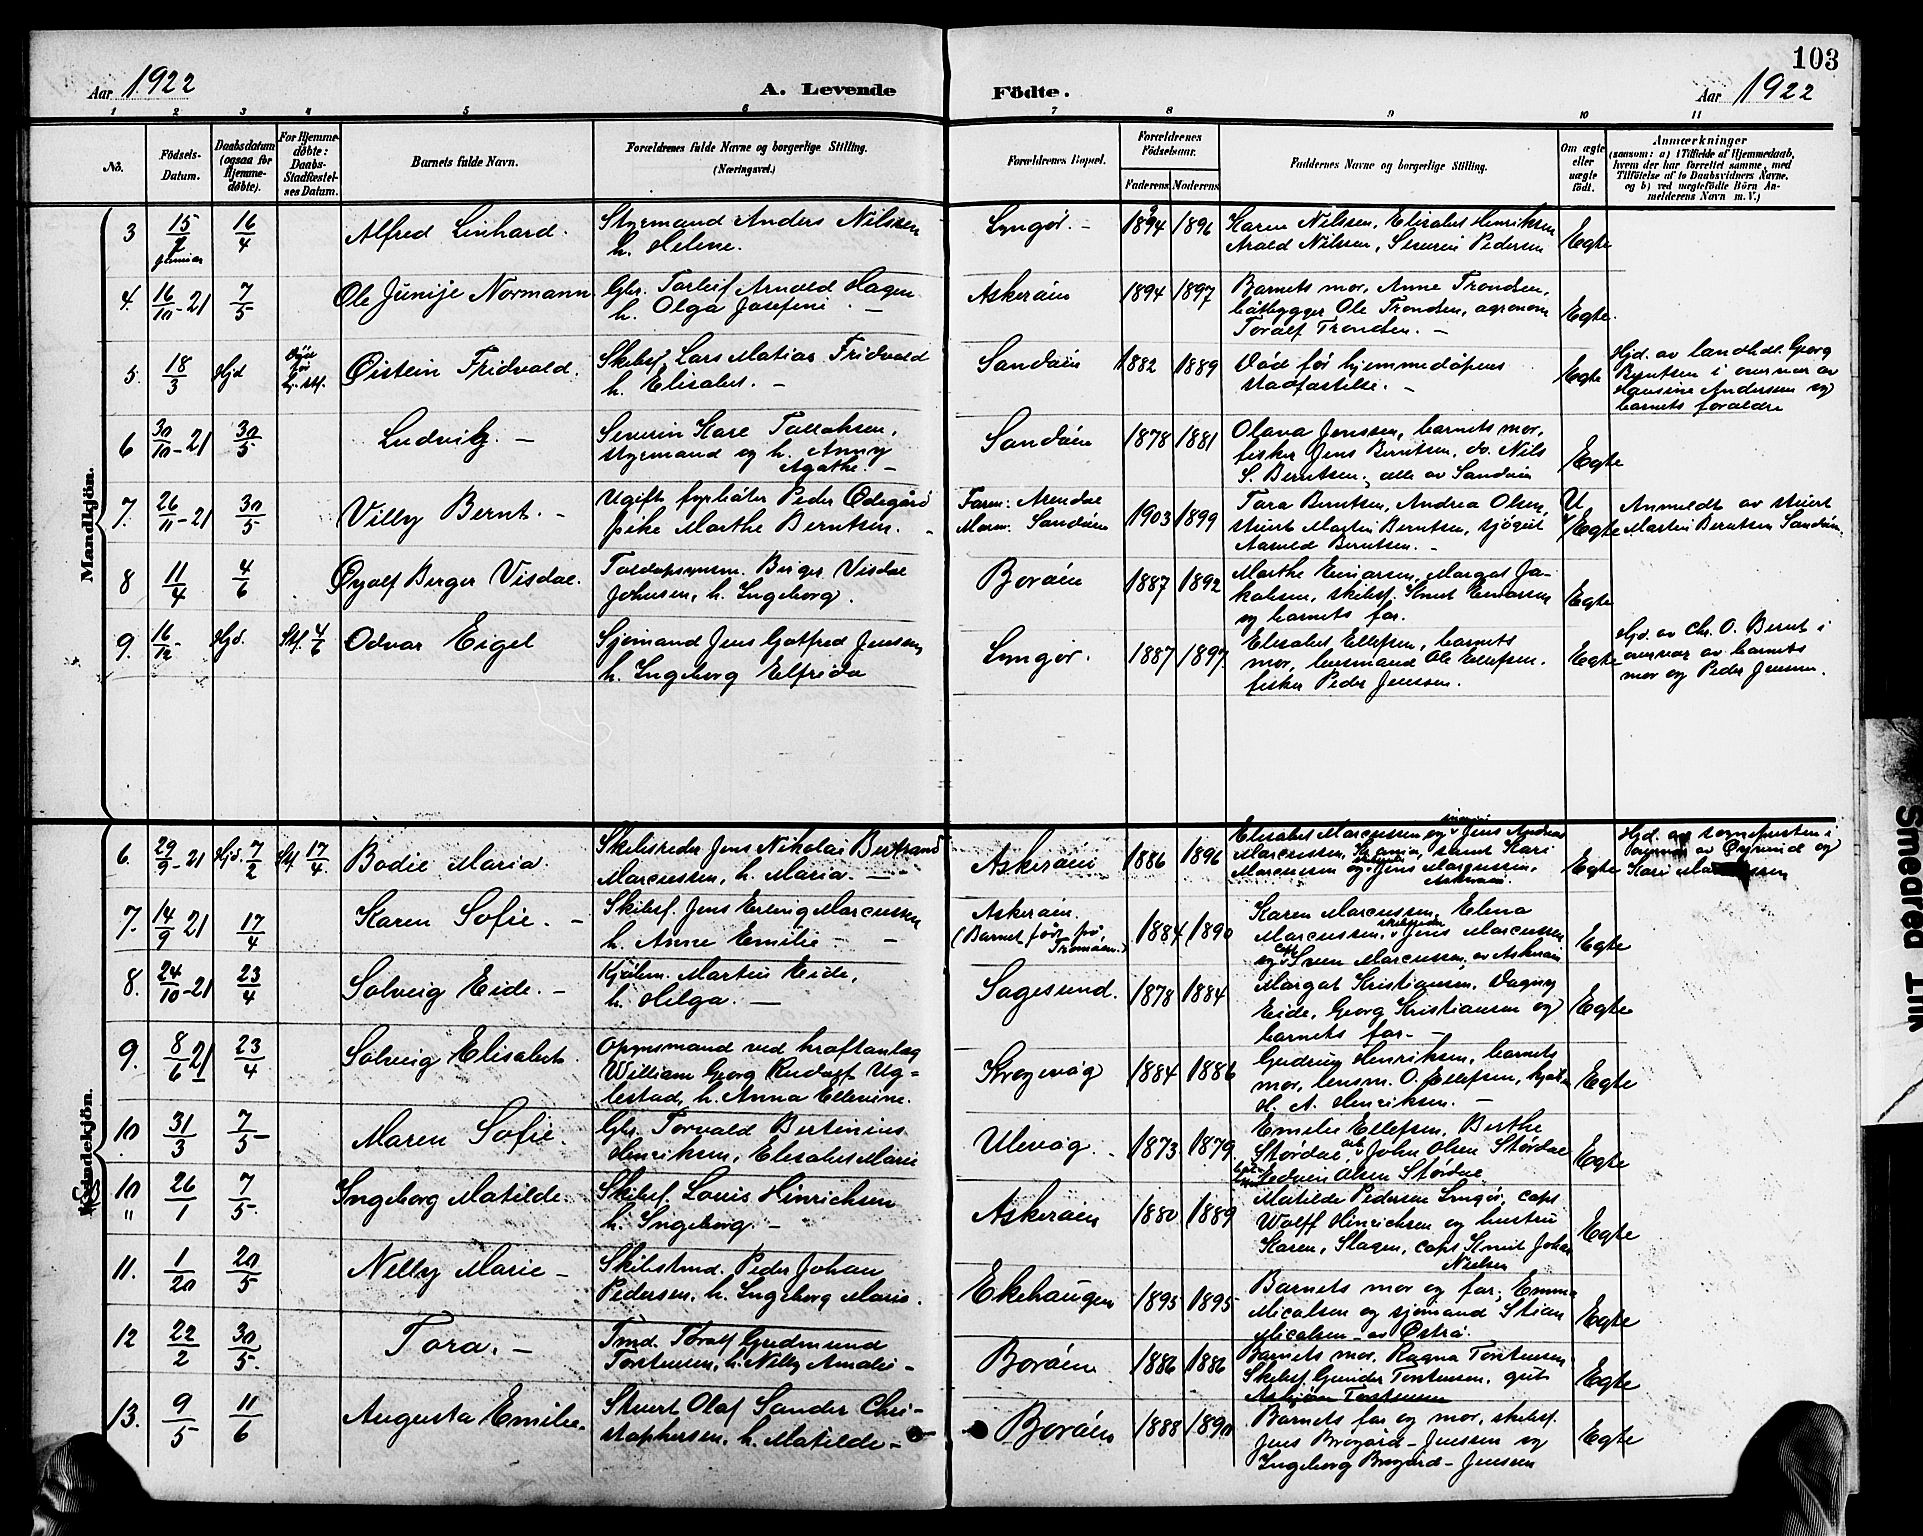 103
Aar 1922
A. Levende Födte.
Aar 1922
1 2 3 4 5 6 7 8 9 10 11
No.
Födsels-Datum.
Daabsdatum (ogsaa for Hjemme-døbte).
For Hjemme-døbte: Daabs-Stadfæstel-ses Datum.
Barnets fulde Navn.
Forældrenes fulde Navne og borgerlige Stilling. (Næringsvei.)
Forældrenes Bopæl.
Forældrenes Födselsaar.
Faderens Moderens
Faddernes Navne og borgerlige Stilling.
Om ægte eller uægte födt.
Anmærkninger
(saasom: a) i Tilfælde af Hjemmedaab, hvem der har forrettet samme, med Tilföielse af to Daabsvidners Navne, og b) ved uægtefödte Börn Anmelderens Navn m. V.)
Mandkjön.
3 15/1 januar 16/4 Alfred Linhard. Styrmand Anders Nilssen h. Helene. Lyngør. - 1894 1896 Karen Nilssen, Elisabet Henriksen Arald Nilssen, Severin Pedersen Egte
4. 16/10-21 7/5 Ole Junije Normann. Gbr. Torleif Arnold Hagen h. Olga Josefine - Askerøien 1894 1897 Barnets mor, Anne Trondsen, båtbygger Ole Trondsen, agronom Toralf Trondsen. - Egte.
5. 18/3 Hjd Død før hj. stf. Øistein Fridvald. Skibsf. Lars Matias Fridvald h. Elisabet. - Sandøien 1882 1889 Død før hjemmedøpens stadfæstelse. - Egte Hjd. av landhdl. Georg Berntsen i overvær av Hansine Andersen og barnets forældre
6 30/10-21 30/5 Ludvik. - Severin Kare Tallaksen, styrmand og h. Anny Agathe. - Sandøien 1878 1881 Olava Jenssen, barnets mor, fisker Jens Berntsen, do. Nils S. Berntsen, alle av Sandøien Egte
7. 26/11-21 30/5 Villy Bernt. - Ugift fyrbøter Peder Ødegård pike Marthe Berntsen. - Farm: Arendal Morm. Sandøien 1903 1899 Tara Berntsen, Andrea Olsen, stuert Martin Berntsen, sjøgut Aanvld Berntsen. - U Egte Anmeldt av stuert Martin Berntsen Sandøien
8 11/4 4/6 Øyolf Berger Visdal. Toldopsynsm. Berger Visdal Johnsen, h. Ingeborg. Borøien 1887 1892 Marthe Einarsen, Margot Jakobsen, skibsf. Knut Einarsen og barnets far. Egte
9. 16/12 Hjd. Stf. 4/6 Odvar Eigel Sjømand Jens Gotfred Jenssen h. Ingeborg Elfrida Lyngør. 1887 1897 Elisabet Ellefsen, barnets mor, lensmand Ole Ellefsen. fisker Peder Jenssen. Egte Hjd. av Chr. O. Bernt i overvær av barnets mor og Peder Jenssen.
Kvindekjön.
6. 29/9-21 Hjd. 7/2 Stf 17/4. Bodil Maria. Skibsreder Jens Nikolai Bertrand Marcussen, h. Maria. - Askerøien 1886 1896 Elisabet Marcussen og Jens Andreas Marcussen, samt Kari Marcussen og Jens Marcussen, Askerøien. Egte Hjd. av sognepresten i nærvær av Øyvind og Kari Marcussen
7. 14/9 21 17/4 Karen Sofie. - Skibsf. Jens Erling Marcussen h. Anne Emilie - - Askerøien. (Barnet født på Tromøen.) 1884 1890 Karen Marcussen, Elena Marcussen, skibsreder Jens Marcussen og cap. Sven Marcussen, av Askerøien Egte
8. 24/10-21 23/4 Solveig Eide. - Kjøbm. Martin Eide, h. Helga. - Sagesund. 1878 1884 Margot Kristiansen, Dagny Eide, Georg Kristiansen og barnets far. - Egte
9. 8/6 21 23/4 Solveig Elisabet. Opsynsmand ved kraftanlæg William Georg Rudolf Uglestad, h. Anna Ellevine. Krogevåg 1884 1886 Gudrun Henriksen, barnets mor, lensm. O. Ellefsen, H. A. Henriksen. - Egte
10 31/3 7/5 Maren Sofie. Gbr. Torvald Bertinius Henriksen, Elisabet Marie Ulevåg. 1873 1879 Emelie Ellefsen, Berthe Størdal, arb. John Olsen Størdal Edvin Olsen Størdal Egte
10 " 26/1 7/5 Ingeborg Matilde. Skibsf. Louis Hinrichsen h. Ingeborg. - Askerøien 1880 1889 Matilde Pedersen Lyngør, capt. Wolff Hinrichsen og hustru Karen, Slagen, capt Knut Johan Nielsen Egte
11. 1/20 20/5 Nelly Marie - Skibstmd. Peder Johan Pedersen, h. Ingeborg Marie. Ekehaugen 1895 1895 Barnets mor og far, Emma Micalsen og sjømand Stian Micalsen - av Østrø. Egte
12 22/2 30/5 Tora. - Tmd. Toralf Gudmund Torstensen, h. Nelly Amalie - Borøien 1886 1886 Barnets mor, Ragna Torstensen Skibsf. Gunder Torstensen, gut Asbjørn Torstensen Egte
13. 9/5 11/6 Augusta Emilie. Stuert Olaf Sander Christophersen, h. Matilde - Borøien 1888 1890 Barnets far og mor, skibsf. Jens Brøgård-Jenssen og Ingeborg Brøgård-Jenssen Egte
Smeared Ink